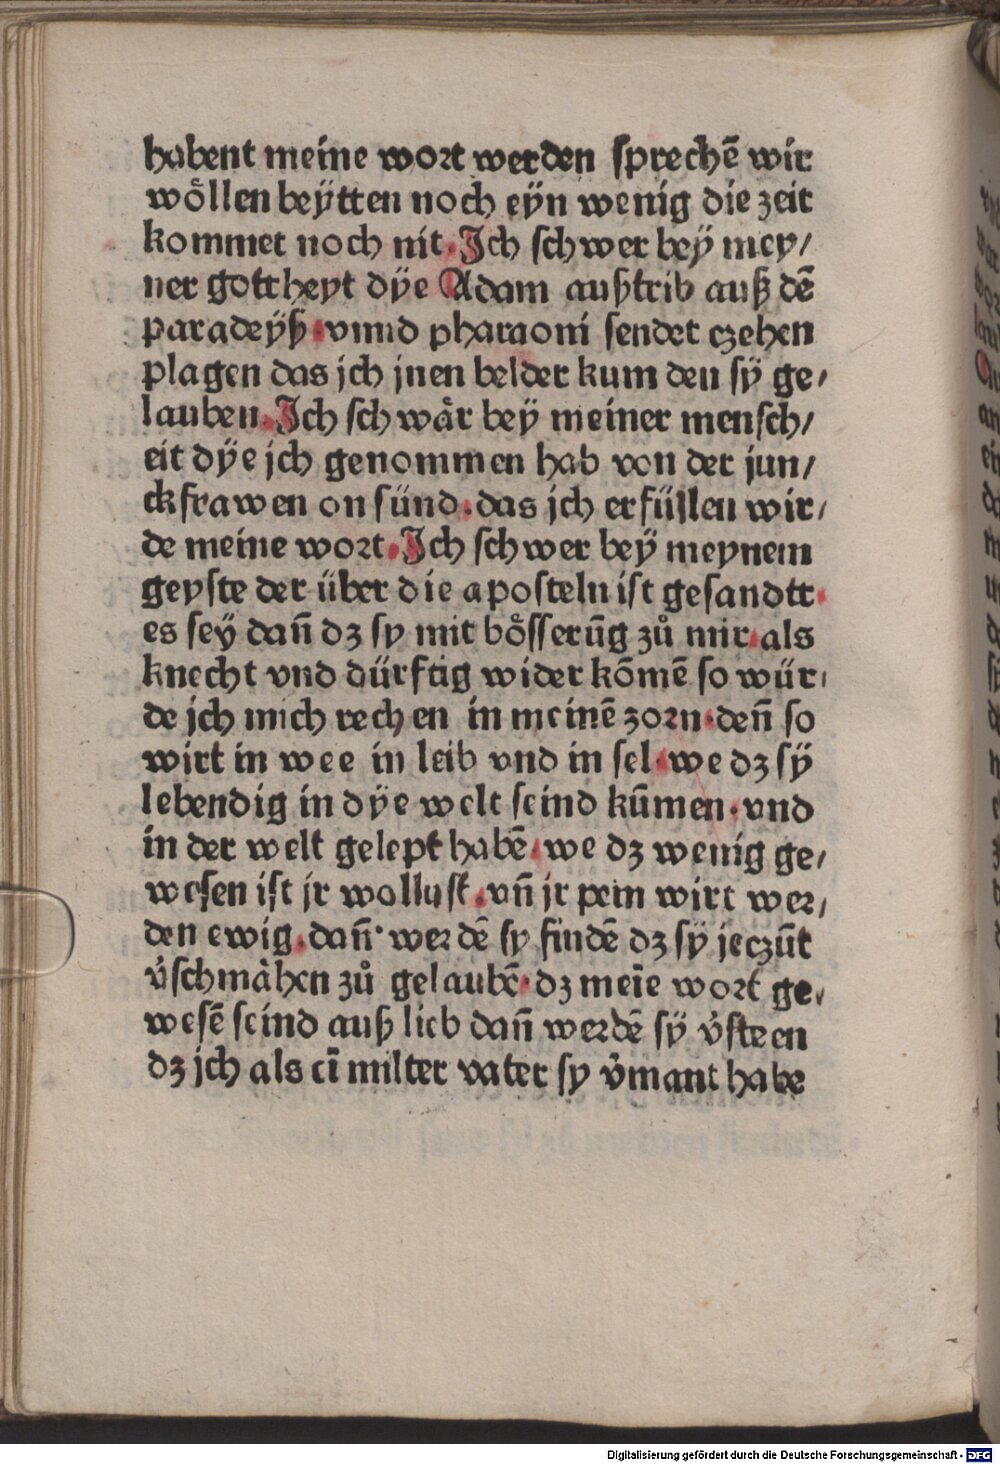 habent meine wort werden sprechē wir
wöllen beÿtten noch eÿn wenig die zeit
kommet noch nit. Jch schwer beÿ mey/
ner gottheyt dÿe Adam außtrib auß dē
paradeÿß. vnnd pharaoni sendet czehen
plagen das jch jnen belder kum den sÿ ge/
lauben. Jch schwår beÿ meiner mensch/
eit dÿe jch genommen hab von der jun/
ckfrawen on sünd. das jch erfüllen wir/
de meine wort. Jch schwer beÿ meynem
geyste der über die aposteln ist gesandtt.
es seÿ dañ dz sy mit bösserūg zů mir. als
knecht vnd dürftig wider kōmē so wür/
de jch mich rechen in meinē zorn. deñ so
wirt in wee in leib vnd in sel. we dz sÿ
lebendig in dÿe welt seind kūmen. vnd
in der welt gelept habē. we dz wenig ge/
wesen ist jr wollust. vñ jr pein wirt wer/
den ewig. dañ werdē sy findē dz sÿ jeczūt
v̓schmåhen zů gelaubē. dz meīe wort ge/
wesē seind auß lieb dañ werdē sÿ v̓steen
dz jch als eī milter vater sy v̓mant habe
Digitalisierung gefördert durch die Deutsche Forschungsgemeinschaft - DFG